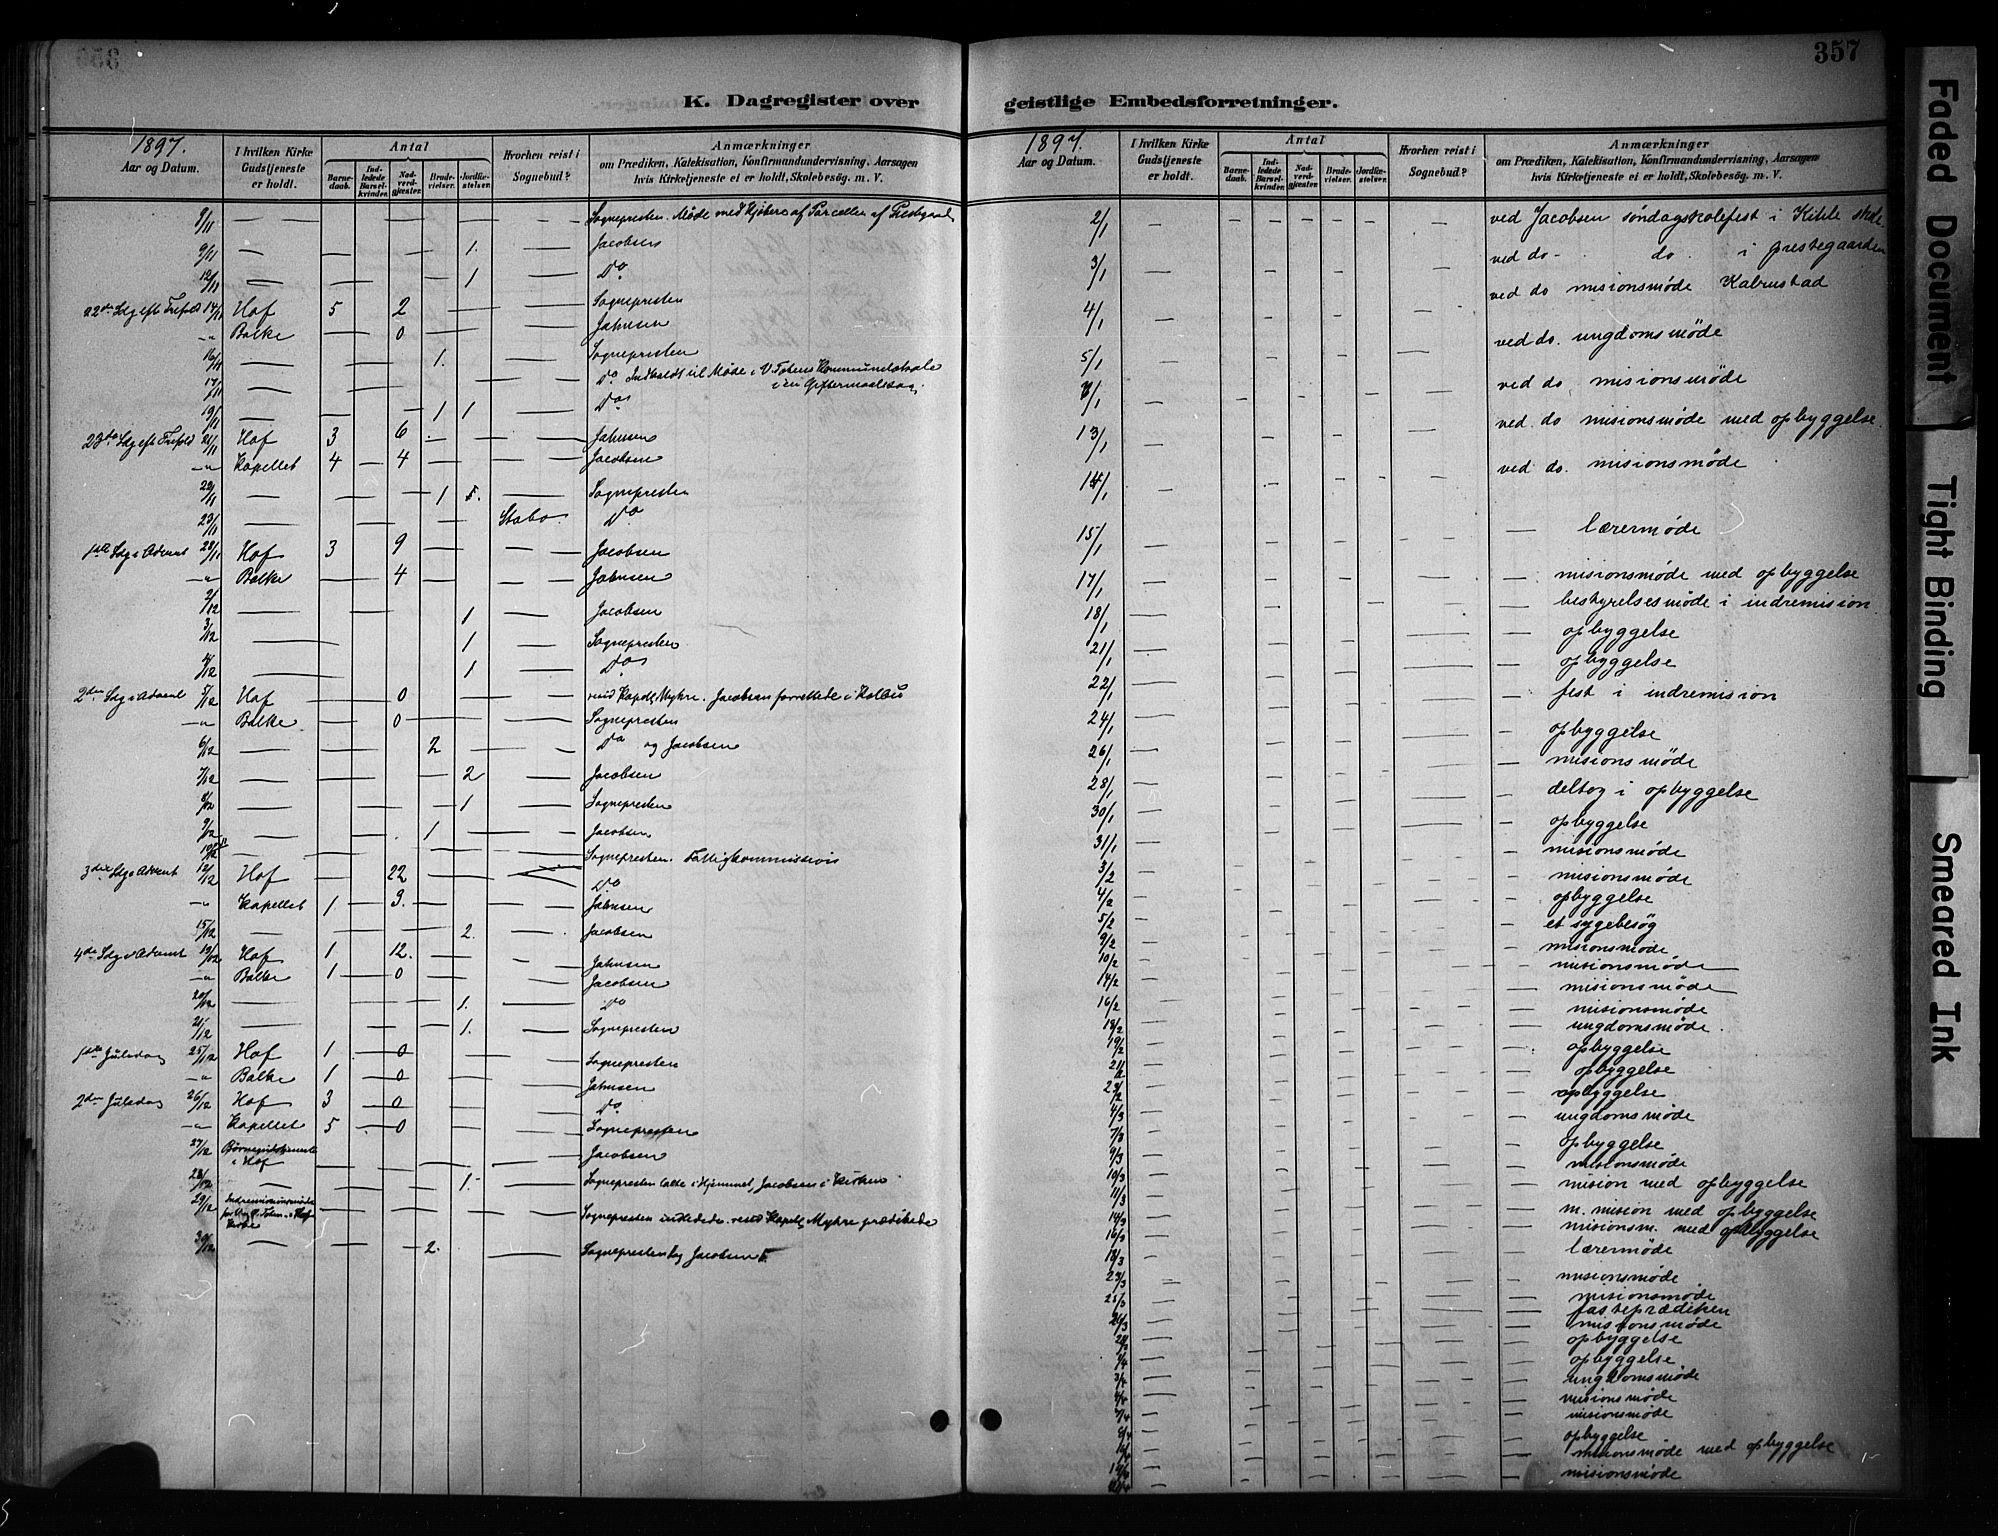 357
K. Dagregister over geistlige Embedsforretninger.
1897.
Aar og Datum.
I hvilken Kirke Gudstjeneste er holdt.
Antal
Barnedaab.
Indledede Barselkvinder.
Nadverdgjester.
Brudevielser.
Jordfæstelser.
Hvorhen reist i Sognebud?
Anmærkninger
om Prædiken, Katekisation, Konfirmandundervisning, Aarsagen
hvis Kirketjeneste ei er holdt, Skolebesøg. m. V.
9/11 — Jacobsen 1.
12/11 — 1 Do
22de Sdg eft Trefold 14/11 Hof 5 — 2 — Sognepresten
—"— Balke — 0 — Jahnsen
16/11 — 1. — Sognepresten
17/11 — Do Indkaldt til Møde i V. Totens Kommunelokale
i en Giftermaalssag.
19/11 — 1 1 — Do
23de Sdg eft Trefold 21/11 Hof 3 6 — Jahnsen
—"— Kapellet 4 — 4 — Jacobsen
22/11 — 1 — Sognepresten
23/11 — Stabo. Do
1ste Sdg i Advent 28/11 Hof 3 9 — Jacobsen
—"— Balke — 4 — Jahnsen
2/12 — 1 — Jacobsen
3/12 — 1 — Sognepresten
4/12 — 1 — Do
2den Sdg i Advent 5/12 Hof — 0 — Myhre. Jacobsen forrettede i Kolbu
—"— Balke — 0 — Sognepresten
6/12 — 2 — Do og Jacobsen
7/12 — 2 — Jacobsen
8/12 — 1 — Sognepresten
9/12 — 1 — Jacobsen
Sognepresten. Fattigkommission
3die Sdg i Advent 12/12 Hof — 22 — Do
—"— Kapellet 1 — 9. — Jahnsen
15/12 — 2. — Jacobsen
4de Sdg i Advent 19/12 Hof 1 — 12. — Jahnsen
—"— Balke 1 — 0 — Jacobsen
20/12 — 1. — Do
21/12 — 1. — Sognepresten
1ste Juledag 25/12 Hof 1 — 0 — Sognepresten
—"— Balke 1 — 0 — Jahnsen
2den Juledag 26/12 Hof 3 — 0 — Do
—"— Kapellet 5 — 0 — Sognepresten
27/12 Børnegudstjeneste i Hof — Jacobsen
28/12 — 1. — Sognepresten i Hjemmet, Jacobsen i Kirken
29/12 — Sognepresten indledede. Myhre prædikede
30/12 — 2. — Sognepresten og Jacobsen
K. Dagregister over geistlige Embedsforretninger.
Aar og Datum.
I hvilken Kirke Gudstjeneste er holdt.
Antal
Barnedaab.
Indledede Barselkvinder.
Nadverdgjester.
Brudevielser.
Jordfæstelser.
Hvorhen reist i Sognebud?
Anmærkninger
om Prædiken, Katekisation, Konfirmandundervisning, Aarsagen
hvis Kirketjeneste ei er holdt, Skolebesög. m. V.
2/1 — ved Jacobsen søndagskolefest i Kihle skole
3/1 — ved do- do. i prestegaarden
4/1 — ved do misionsmøde Kabrustad
5/1 — ved do. ungdomsmøde
— ved do misionsmøde
13/1 — ved do misionsmøde med opbyggelse.
14/1 — ved do. misionsmøde
15/1 — lærermøde
17/1 — misionsmøde med opbyggelse
18/1 — bestyrelsesmøde i indremision.
21/1 — opbyggelse
22/1 — opbyggelse
24/1 — fest i indremision
26/1 — opbyggelse
28/1 — misionsmøde
30/1 — deltog i opbyggelse
31/1 — opbyggelse
3/2 — misionsmøde
4/2 — misionsmøde
5/2 — opbyggelse
9/2 — et sygebesøg
10/2 — misionsmøde
14/2 — misionsmøde
16/2 — misionsmøde
18/2 — misionsmøde
19/2 — ungdomsmøde.
21/2 — opbyggelse
23/2 — opbyggelse
4/3 — opbyggelse
7/3 — ungdomsmøde
9/3 — opbyggelse
10/3 — misionsmøde
11/3 — mision med opbyggelse
14/3 — m. mision med opbyggelse
16/3 — misionsm. med opbyggelse
18/3 — lærermøde
23/3 — misionsmøde
25/3 — misionsmøde
— fasteprædiken
— misionsmøde
— opbyggelse
— opbyggelse.
3/4 — ungdomsmøde
— misionsmøde
7/4 — misionsmøde
8/4 — opbyggelse
— misionsmøde med opbyggelse
— misionsmøde
Faded Document
Tight Binding
Smeared Ink